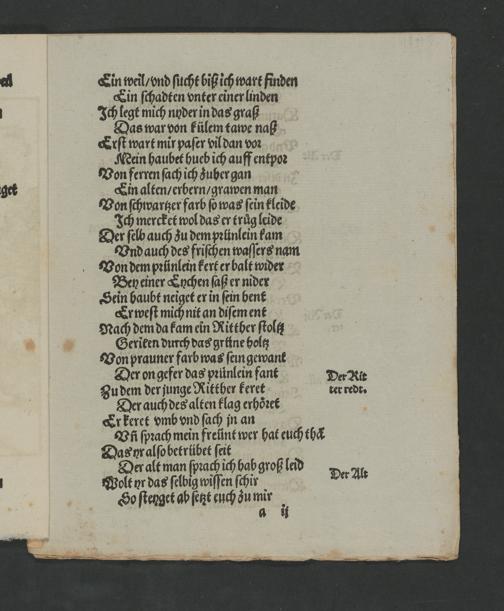 Ein weil/vnd sucht biß ich wart finden
Ein schadten vnter einer linden
Ich legt mich nyder in das graß
Das war von külem tawe naß
Erst wart mir paser vil dan vor
Mein haubet hueb ich auff entpor
Von ferren sach ich zuher gan
Ein alten/erbern/grawen man
Von schwartzer farb so was sein kleide
Ich mercket wol das er trüg leide
Der selb auch zu dem prünlein kam
Vnd auch des frischen wassers nam
Von dem prünlein kert er balt wider
Bey einer Eychen saß er nider
Sein haubt neiget er in sein hent
Er west mich nit an disem ent
Nach dem da kam ein Ritther stoltz
Geriten durch das grüne holtz
Von prauner farb was sein gewant
Der on gefer das prünlein fant
Der Rit
Zu dem der junge Ritther keret
ter redt.
Der auch des alten klag erhöret
Er keret vmb vnd sach jn an
Vñ sprach mein freünt wer hat euch thã
Das yr also betrübet seit
Der alt man sprach ich hab groß leid
Der Alt
Wolt yr das selbig wissen schir
So steyget ab setzt euch zu mir
a ij
get